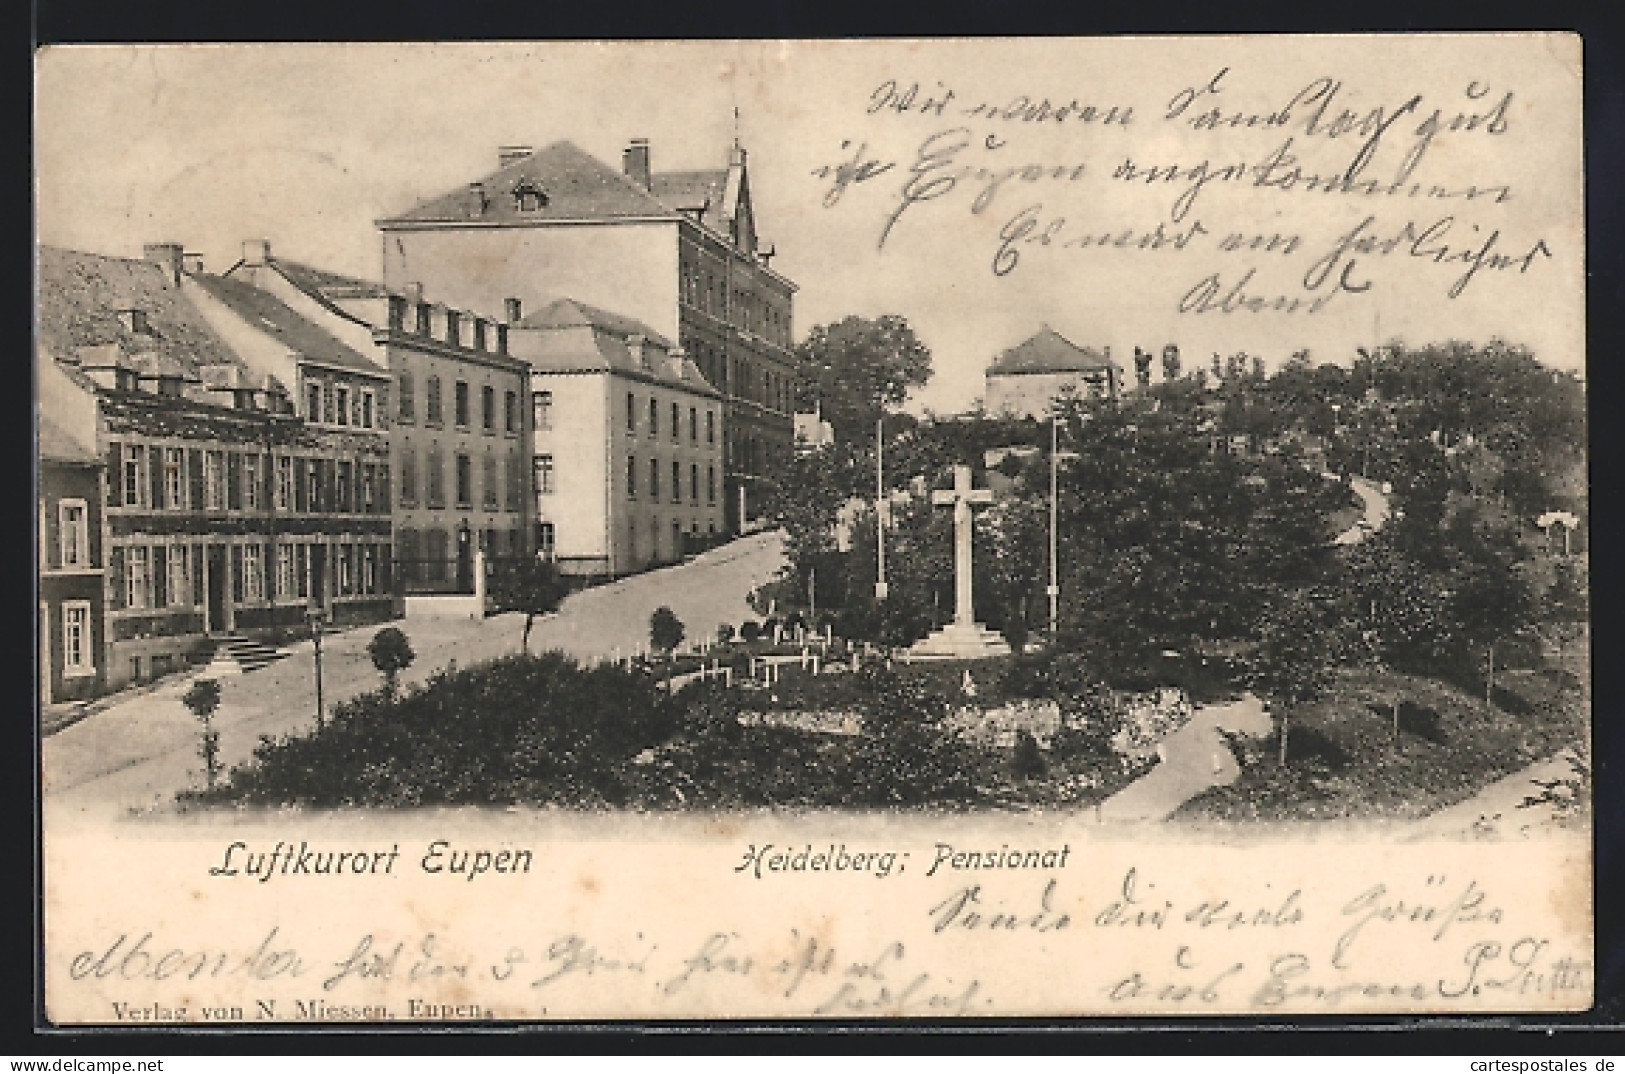 Wir waren Samstag gut
in Eupen angekommen
Es war ein herrlicher
Abend
Luftkurort Eupen
Heidelberg; Pensionat
Sende Dir viele Grüße
aus Eupen P.
hat den 3 Preis hier ist es
herrlich.
Verlag von N. Miessen, Eupen.
cartespostales de